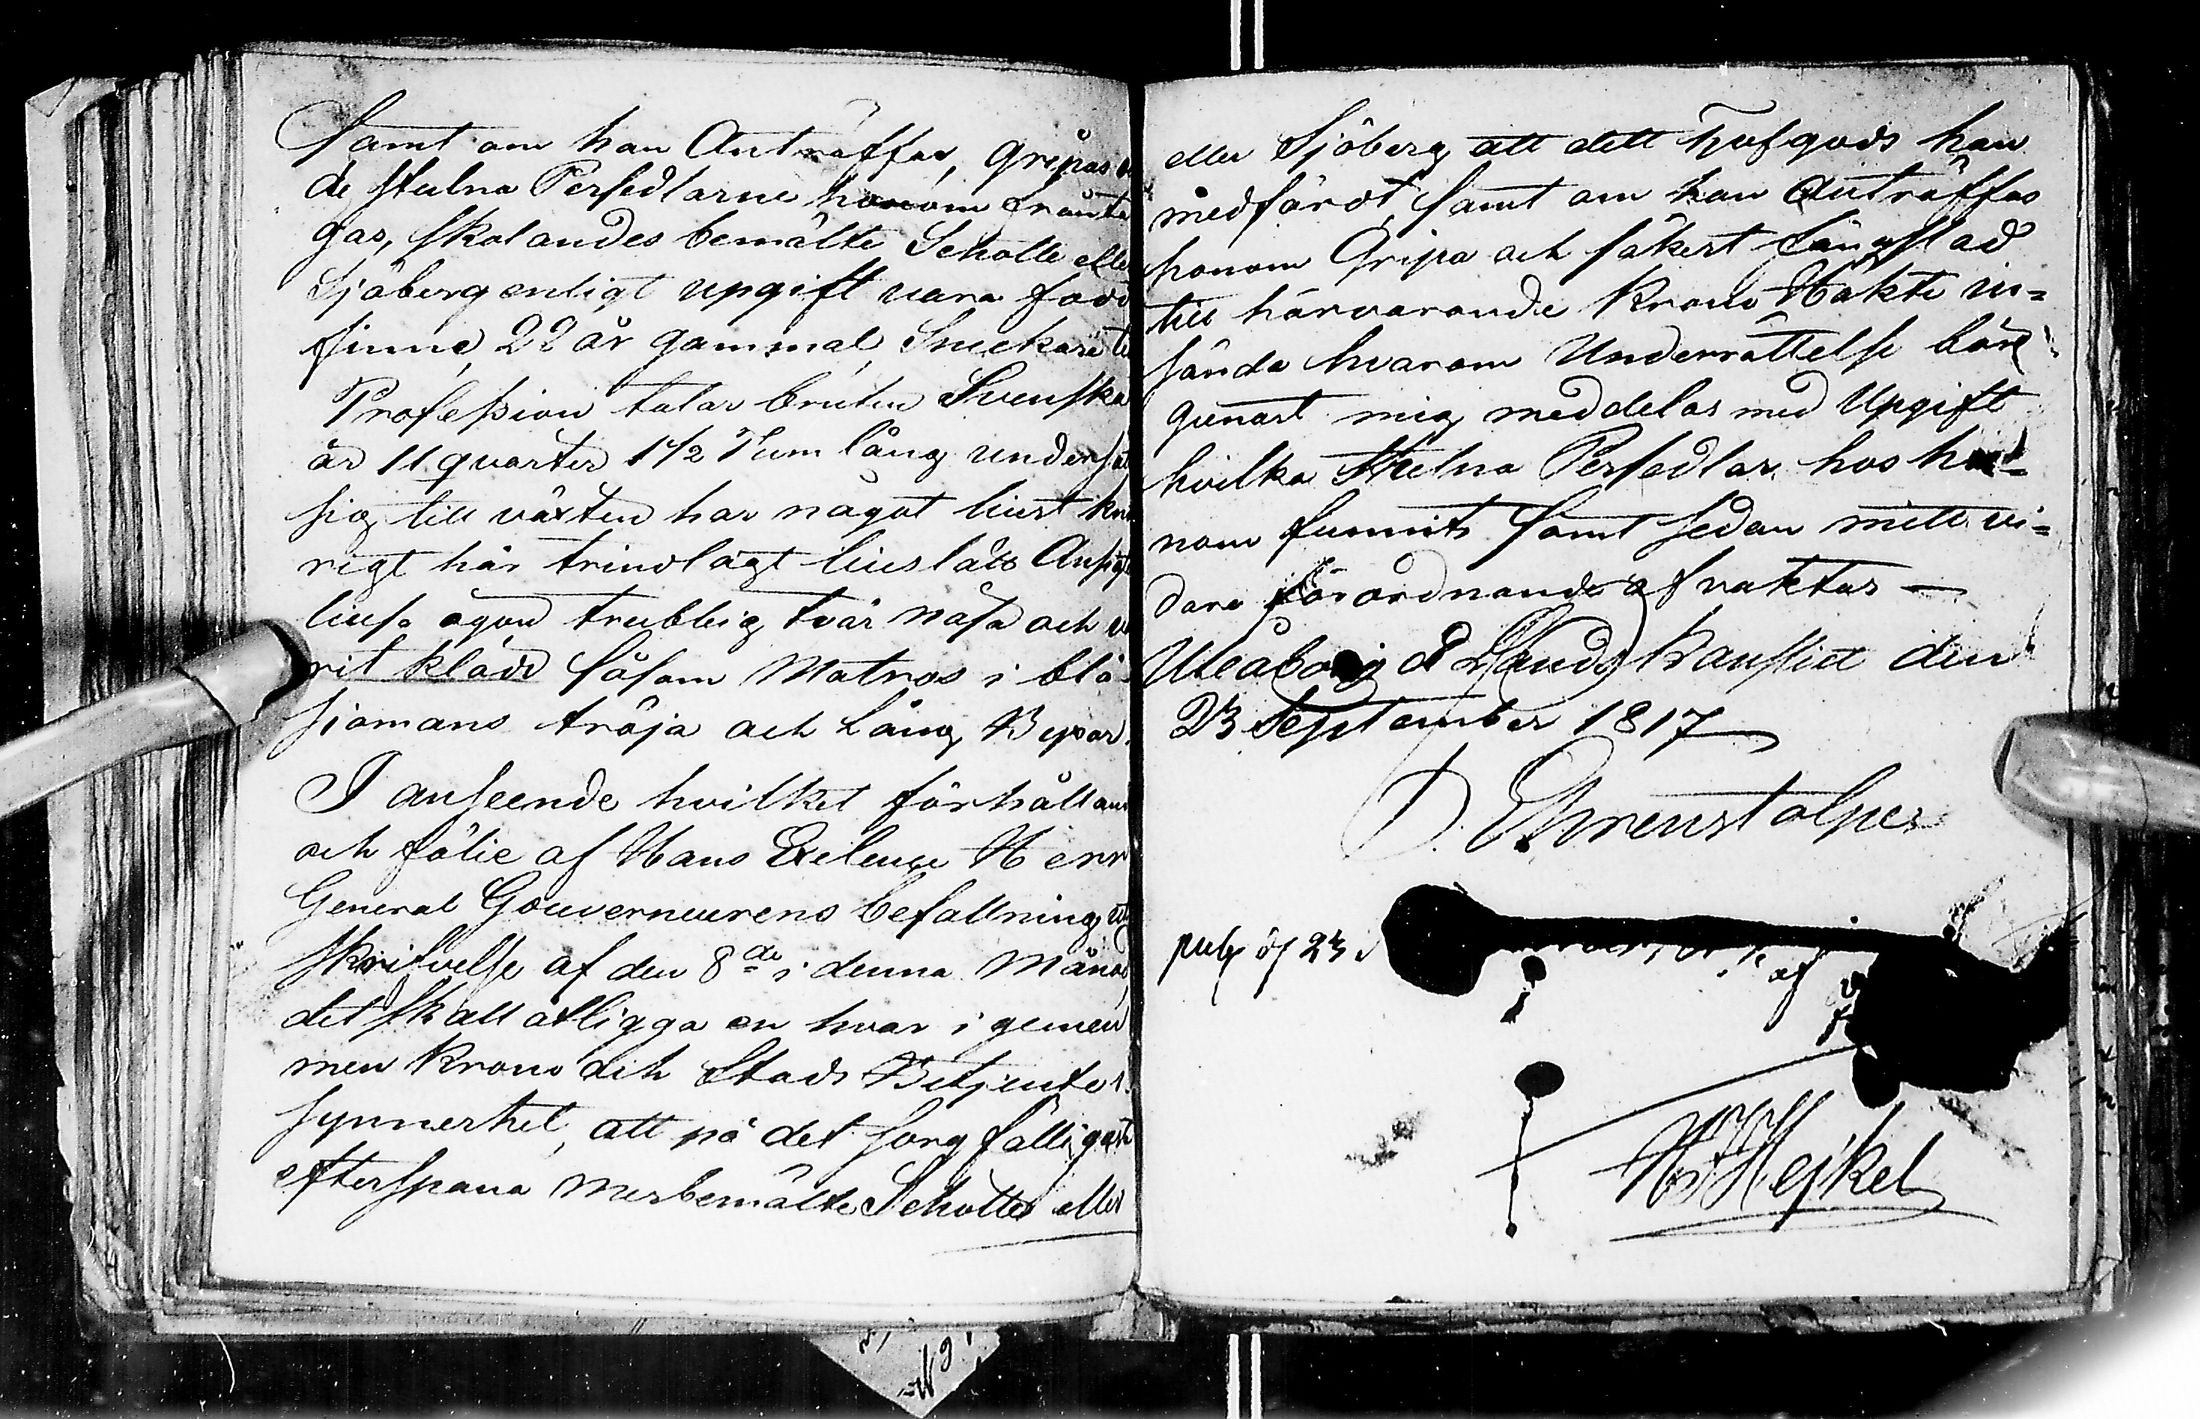 Samt om han Anträffas, gripas o
de stulna Persedlarne honom frånta
gas, skolandes bemälte Scholte eller
Sjöberg enligt upgift vara född
finne, 22 år gammal, Snickare til
Profession talar bruten Svenska
är 11 quarter 1 1/2 Tum lång undersät
sig till växten har något liust kru
rigt hår trindlagt liuslätt Ansigte
liusa ögon trubbig tvär näsa och va
rit klädd såsom Matros i blå
sjömans tröja och Lång Byxor.
I anseende hvilket förhålland
och fölie af Hans Exelence Herr
General Gouverneurens befallning ut
skrifvelse af den 8de i denna Månad
det skall åtligga en hvar i gemen
men Krono och Stads Betjente i
synnerhet, att på det sorgfälligast
efterspana merbemälte Scholte eller
eller Sjöberg att dett Tjufgods han
medfördt, Samt om han Anträffas
honom Gripa och säkert fängslad
till härvarande Krono Häkte in=
sända hvarom Underrättelse bör
genast mig meddelas med Upgift
hvilka Stulna Persedlar hos ho=
nom funnits Samt sedan mitt vi=
dare förordnande afvaktas —
Uleåborg å Lands Kansliet den
23 September 1817
S. Ehrenstolpe
publ öf 23
af
H Hejkel